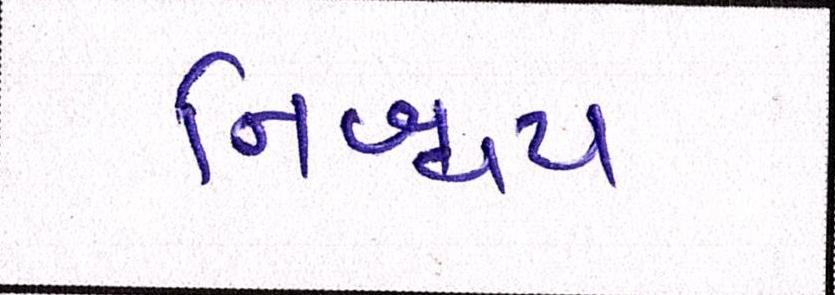 નિશ્ચય